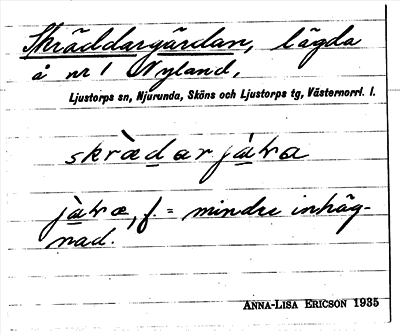 Skräddargärdan, lägda
å nr 1 Nyland,
Ljustorps sn, Njurunda, Sköns och Ljustorps tg, Västernorrl. l.
skrädar jàƚva
jàƚvæ, f. = mindre inhäg-
nad.
ANNA-LISA ERICSON 1935